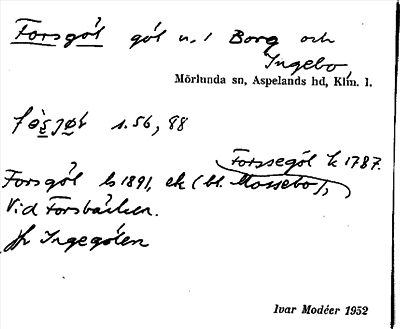 Forsgöl göl n. i Borg och
Ingebo
Mörlunda sn, Aspelands hd, Klm. l.
s. 56, 88
Forssegöl k 1787.
Forsgöl ls 1891, ek (bl. Mossebo),
Vid Forsbäcken.
jfr Ingegölen
Ivar Modéer 1952